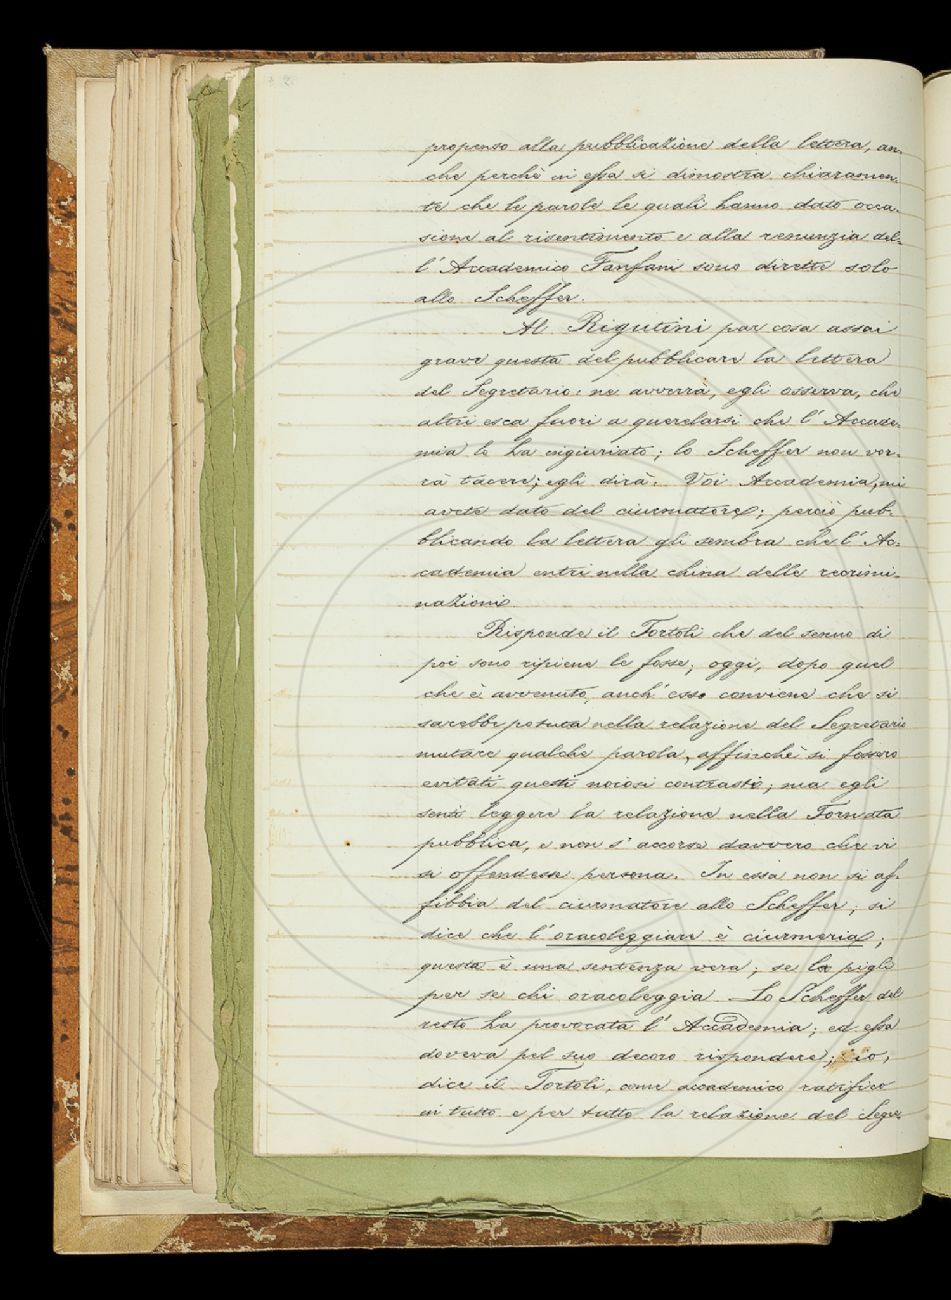 propenso alla pubblicazione della lettera, an-
che perchè in essa si dimostra chiaramen-
te che le parole le quali hanno dato occa-
sione al risentimento e alla renunzia del-
l'Accademico Fanfani sono dirette solo
allo Scheffer.
Al Rigutini par cosa assai
grave questa del pubblicare la lettera
del Segretario: ne avverrà, egli osserva, che
altri esca fuori a querelarsi che l'Accade-
mia lo ha ingiuriato; lo Scheffer non vor-
rà tacere; egli dirà: Voi Accademia, mi
avete dato del ciurmatore; perciò pub-
blicando la lettera gli sembra che l'Ac-
cademia entri nella china delle recrimi-
nazioni
Risponde il Tortoli che del senno di
poi sono ripiene le fosse; oggi, dopo quel
che è avvenuto, anch'esso conviene che si
sarebbe potuta nella relazione del Segretario
mutare qualche parola, affinchè si fossero
evitati questi noiosi contrasti; ma egli
sentì leggere la relazione nella Tornata
pubblica, e non s'accorse davvero che vi
si offendesse persona. In essa non si af-
fibbia del ciurmatore allo Scheffer; si
dice che l'oracoleggiare è ciurmeria;
questa è una sentenza vera; se la pigli
per se chi oracoleggia. Lo Scheffer del
resto ha provocata l'Accademia; ed essa
doveva pel suo decoro rispondere; io,
dice il Tortoli, come accademico ratifico
in tutto e per tutto la relazione del Segre-